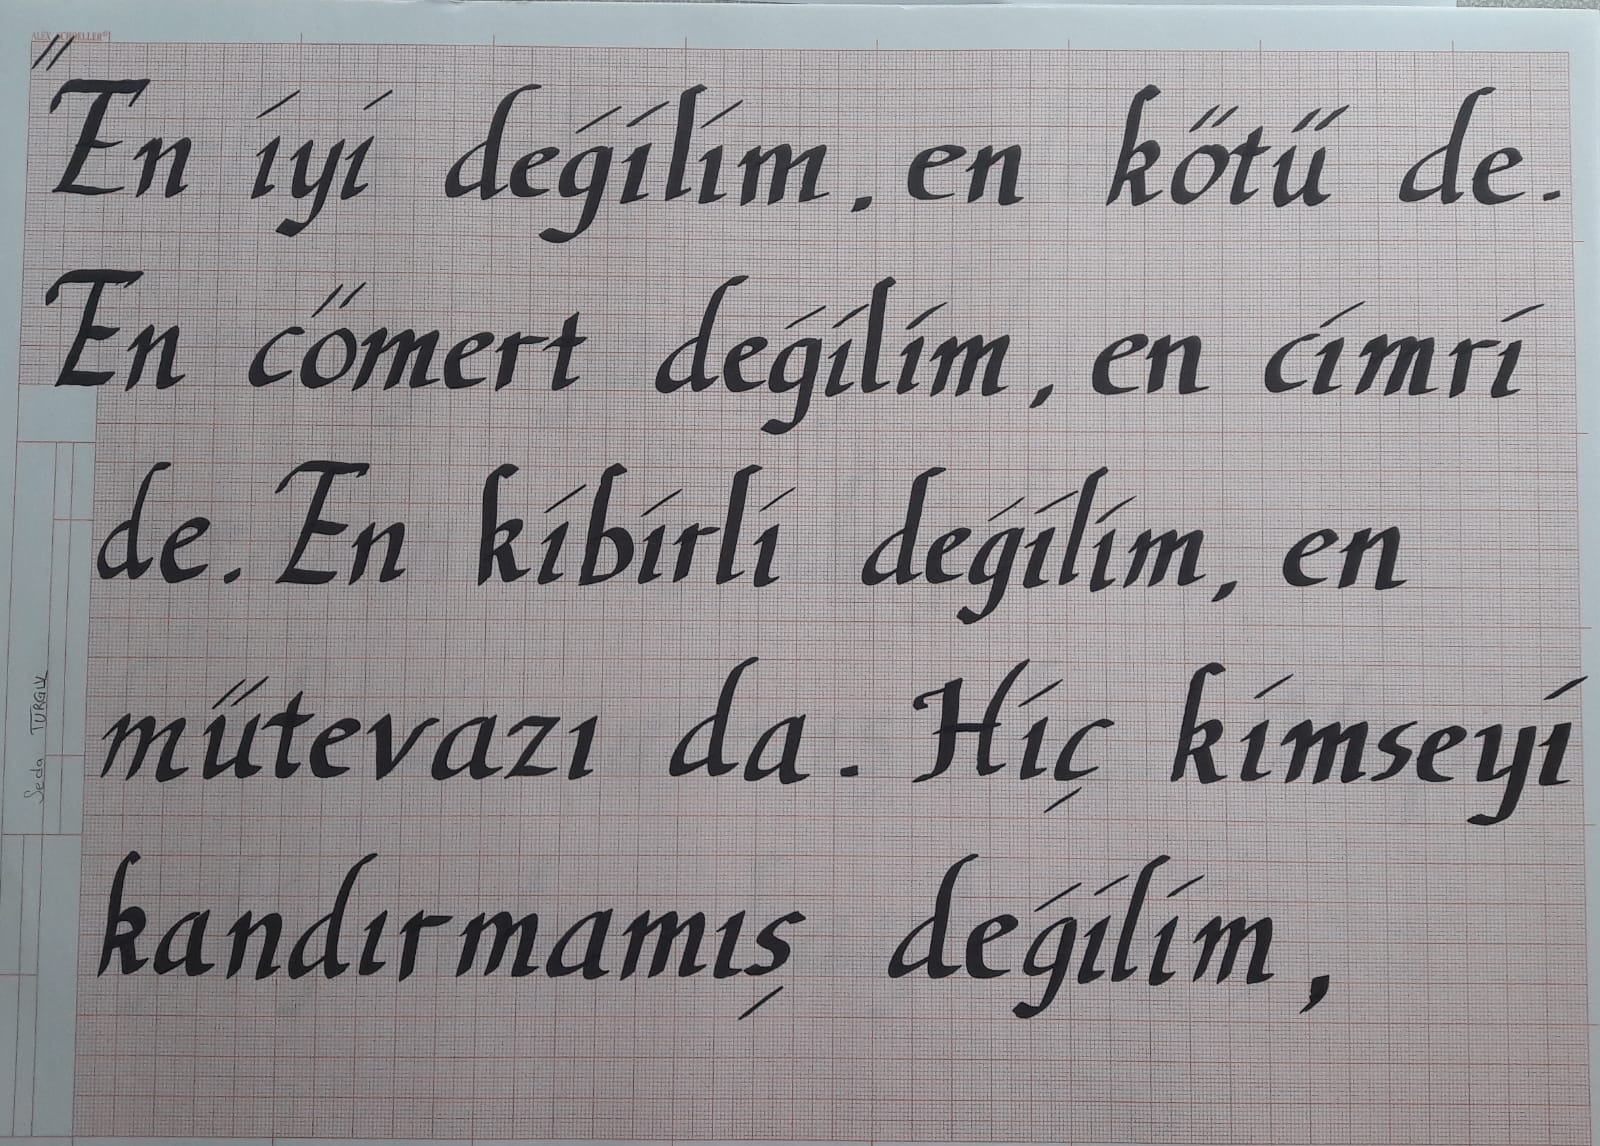 "
En iyi değilim, en kötü de.
En cömert değilim, en cimri
de. En kibirli değilim, en
mütevazı da. Hiç kimseyi
kandırmamış değilim,
Seda